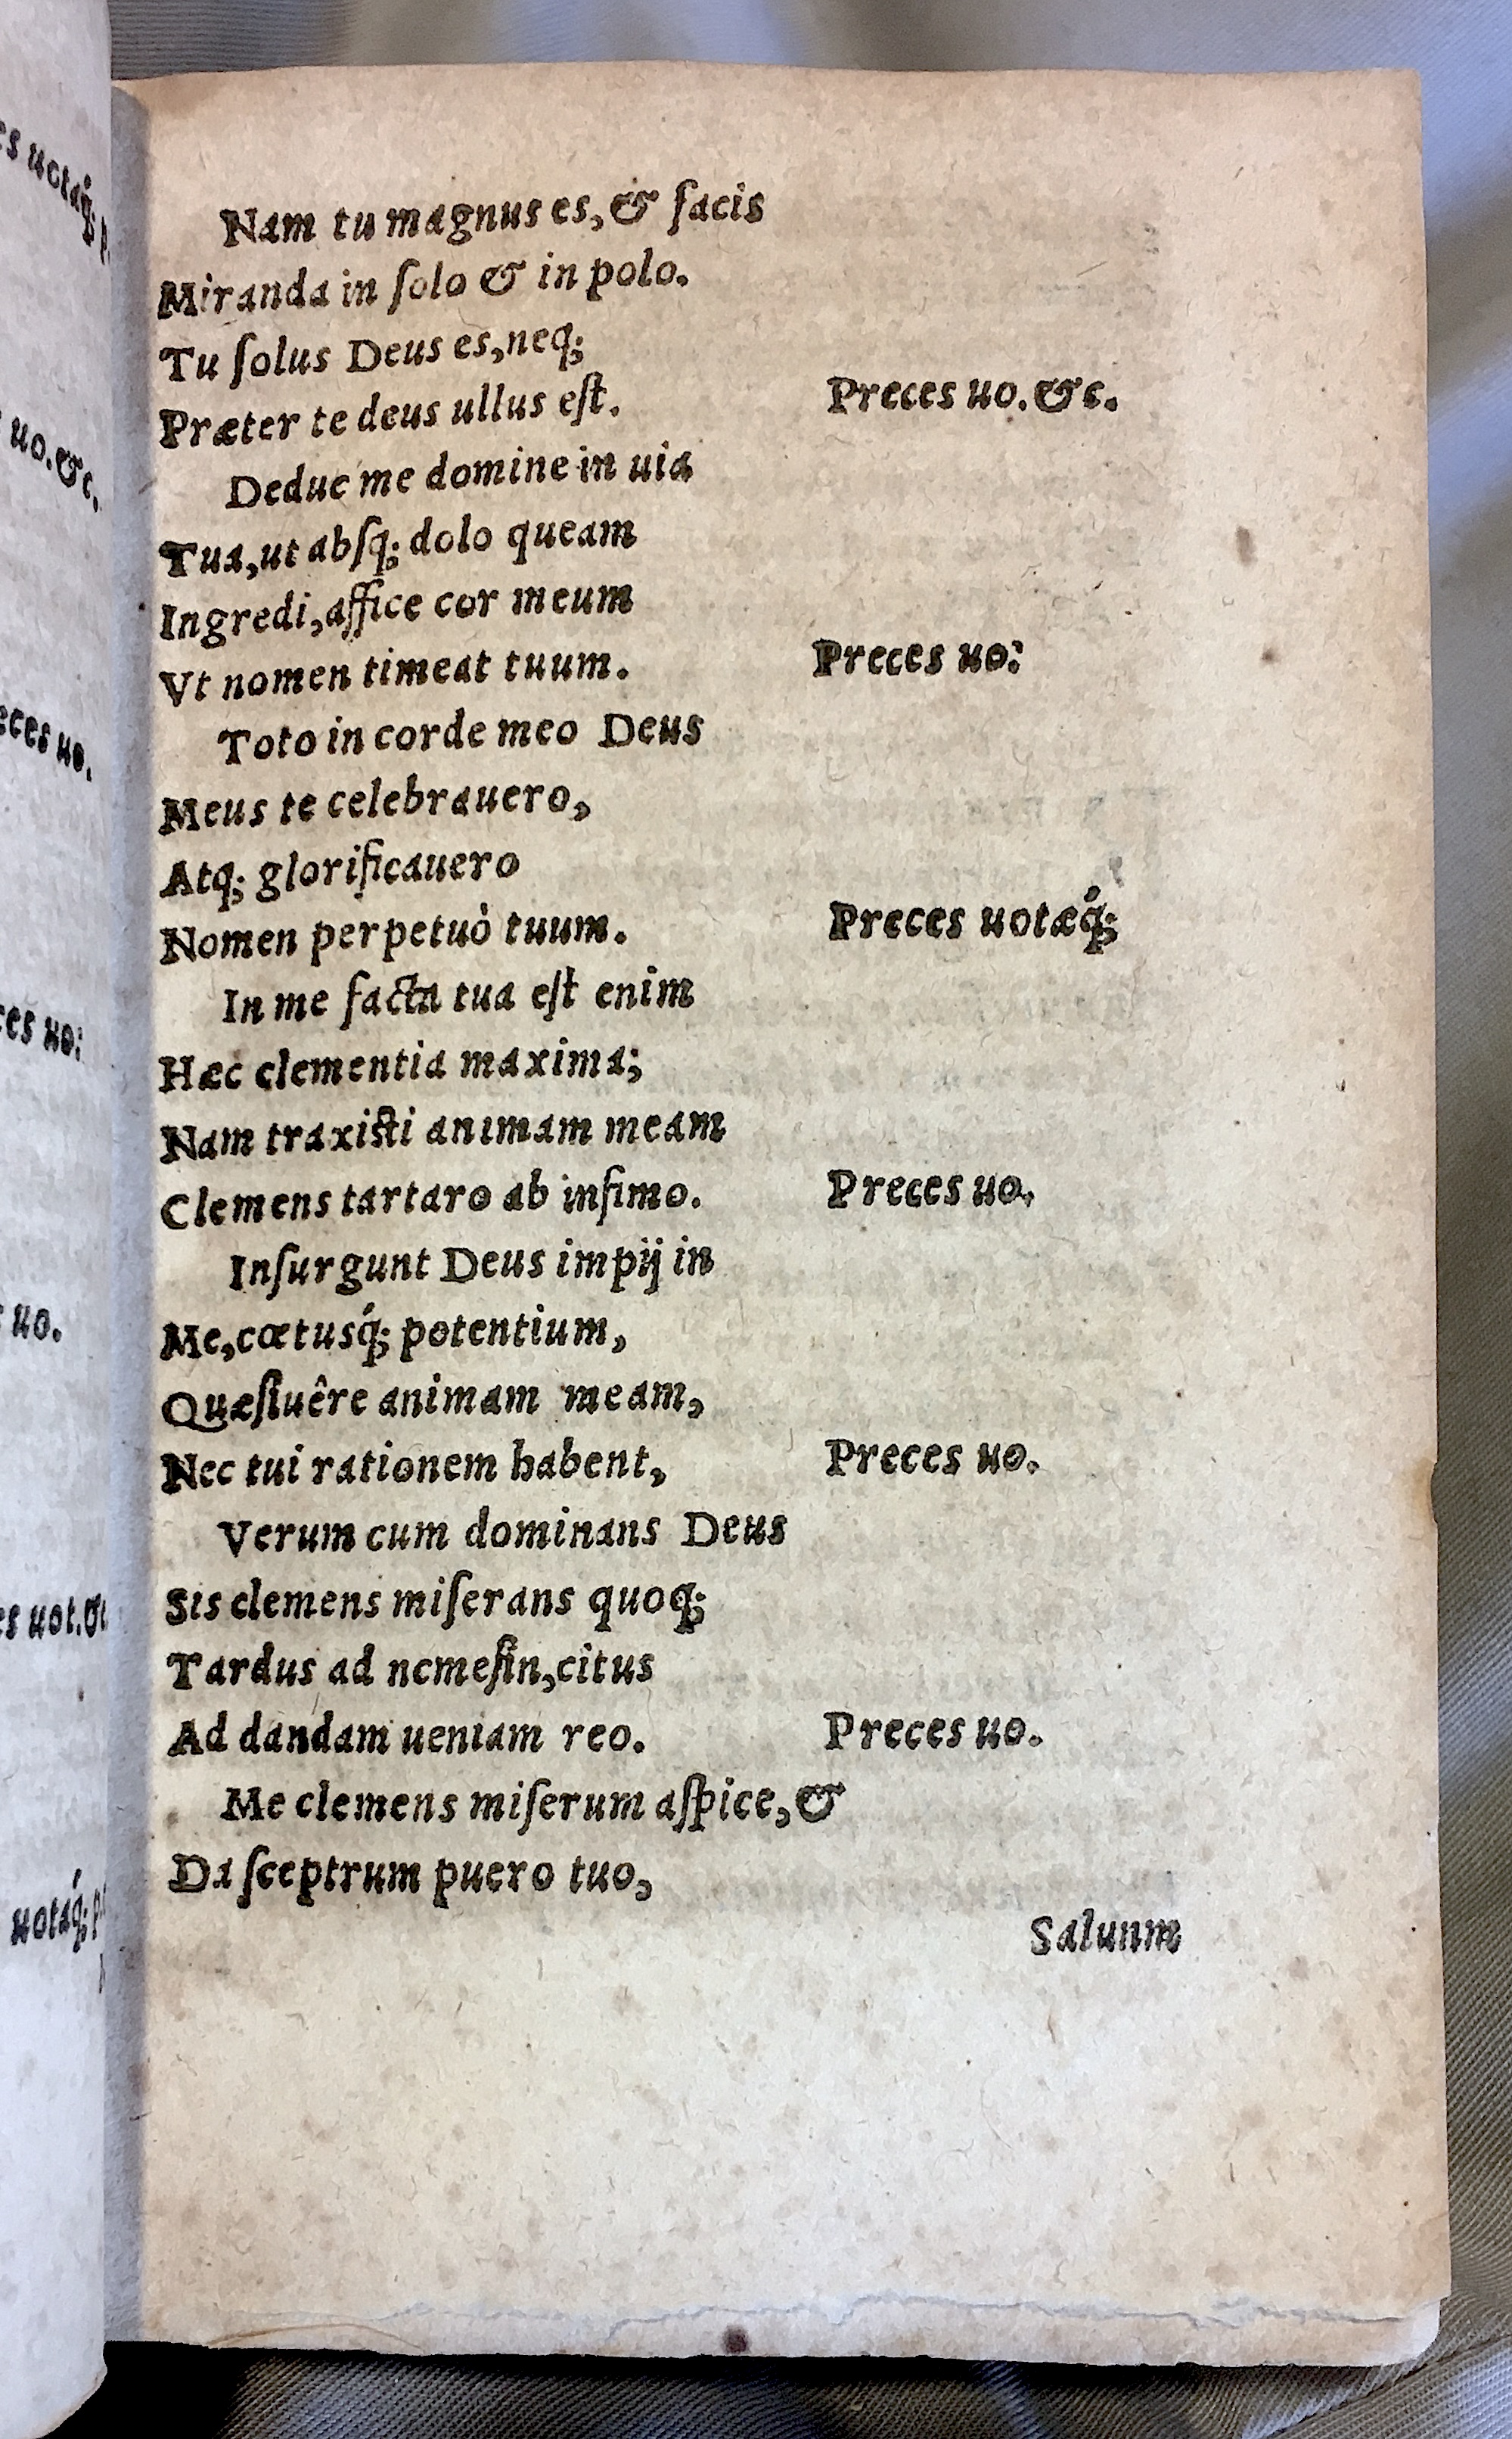 Nam tu magnus es, & facis
Miranda in ſolo & in polo.
Tu ſolus Deus es, neq;
Præter te deus ullus eſt. Preces uo. &c.
Deduc me domine in uia
Tua, ut abſq; dolo queam
Ingredi, affice cor meum
Vt nomen timeat tuum. Preces uo:
Toto in corde meo Deus
Meus te celebrauero,
Atq; glorificauero
Nomen perpetuò tuum. Preces uotæq́;
In me facta tua eſt enim
Hæc clementia maxima;
Nam traxisti animam meam
Clemens tartaro ab infimo. Preces uo.
Inſurgunt Deus impij in
Me, cœtusq́; potentium,
Quæſiuêre animam meam,
Nec tui rationem habent, Preces uo.
Verum cum dominans Deus
Sis clemens miſerans quoq;
Tardus ad nemeſin, citus
Ad dandam ueniam reo. Preces uo.
Me clemens miſerum aſpice, &
Da ſceptrum puero tuo,
Salunm